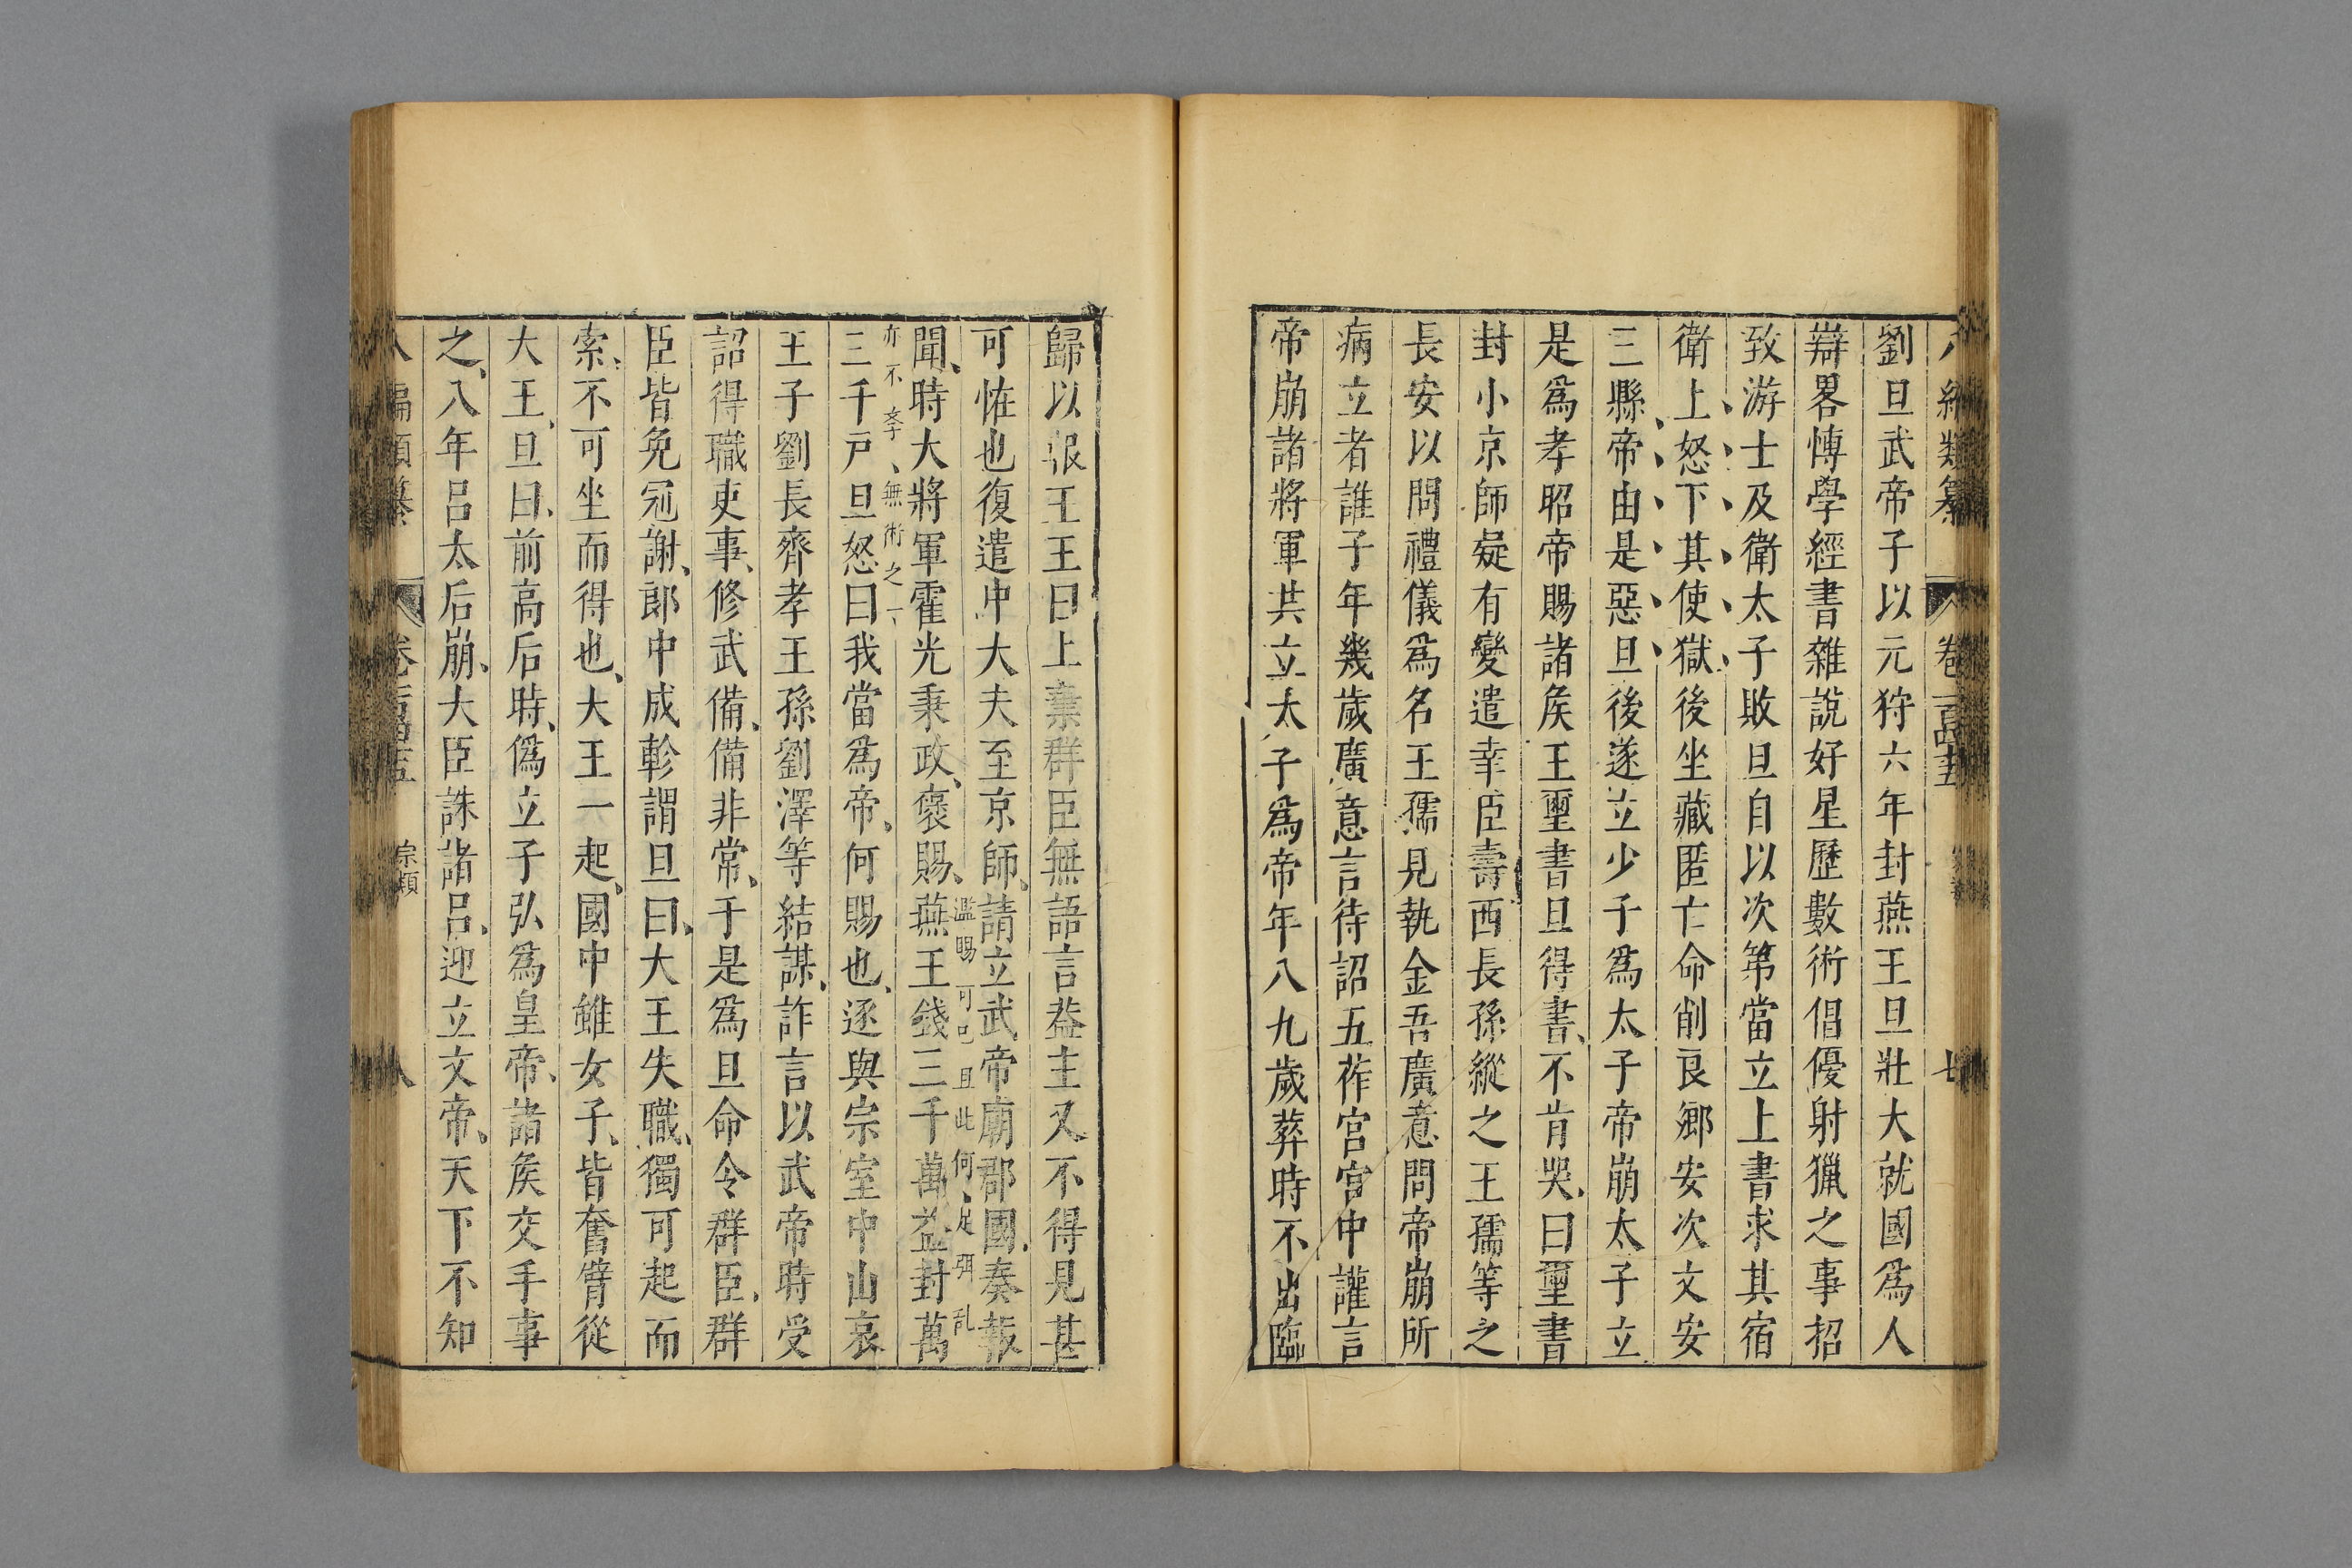 編類纂 卷一百四十五 七
劉旦武帝子以元狩六年封燕王旦壯大就國爲人
辯畧愽學經書雜說好星歷數術倡優射獵之事招
致游士及衛太子敗旦自以次第當立上書求其宿
衛上怒下其使獄後坐藏匿亡命削良鄉安次文安
三縣帝由是惡旦後遂立少子爲太子帝崩太子立
是爲孝昭帝賜諸矦王璽書旦得書不肯哭曰璽書
封小京師疑有變遣幸臣壽西長孫縱之王孺等之
長安以問禮儀爲名王孺見執金吾廣意問帝崩所
病立者誰子年幾歲廣意言待詔五莋宮宮中讙言
帝崩諸將軍共立太子爲帝年八九歲葬時不出臨
歸以報王王曰上棄群臣無語言葢主又不得見甚
可恠也復遣中大夫至京師請立武帝廟郡國奏報
濫賜可已且此何足弭乱
聞時大將軍霍光秉政褒賜燕王錢三千萬益封萬
亦不孝無術之一
三千戶旦怒曰我當爲帝何賜也遂與宗室中山哀
王子劉長齊孝王孫劉澤等結謀詐言以武帝時受
詔得職吏事修武備備非常于是爲旦命令群臣群
臣皆免冠謝郎中成軫謂旦曰大王失職獨可起而
索不可坐而得也大王一起國中雖女子皆奮臂從
大王旦曰前高后時僞立子弘爲皇帝諸矦交手事
之八年呂太后崩大臣誅諸呂迎立文帝天下不知
編類纂 卷一百四十五 宗類 八